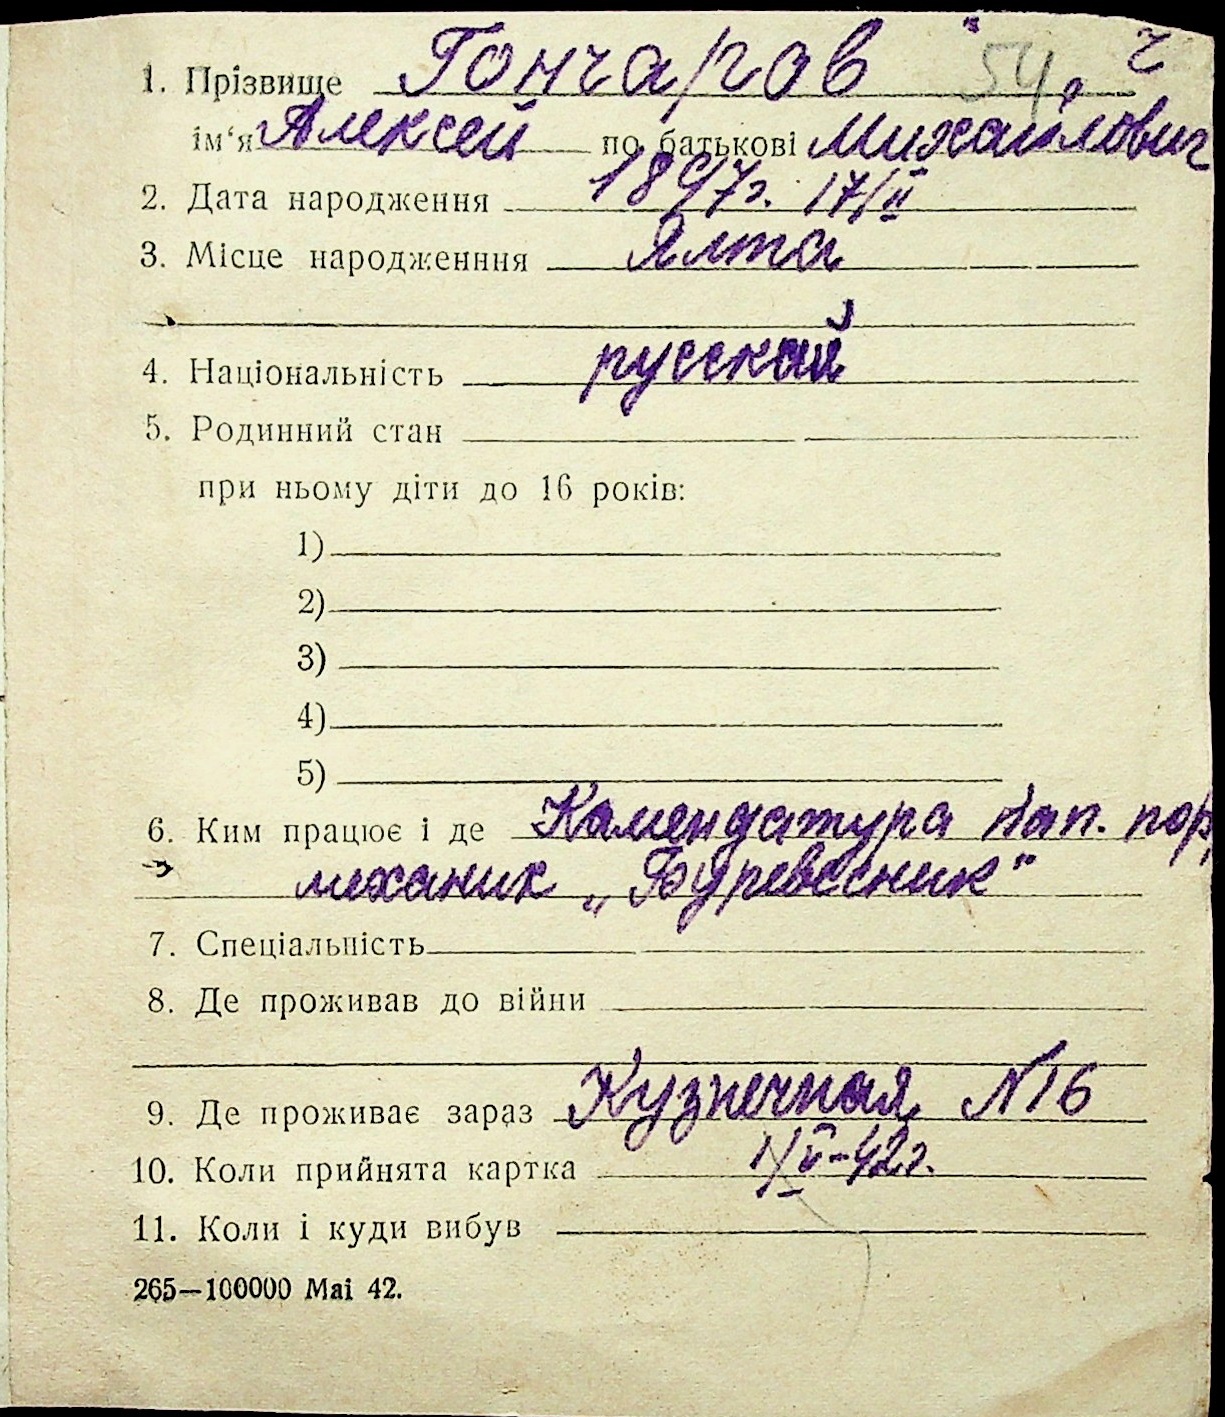 1. Прізвище Гончаров 54, ч
ім‘я Алексей по батькові Михайлович
2. Дата народження 1897г. 17/II
3. Місце народженння Ялта
4. Національність русский
5. Родинний стан
при ньому діти до 16 років:
1)
2)
3)
4)
5)
6. Ким працює і де Комендатура пор.
механик „Буревесник"
7. Спеціальність
8. Де проживав до війни
9. Де проживає зараз Кузнечная N 16
10. Коли прийнята картка -42г.
11. Коли і куди вибув
265—100000 Mai 42.